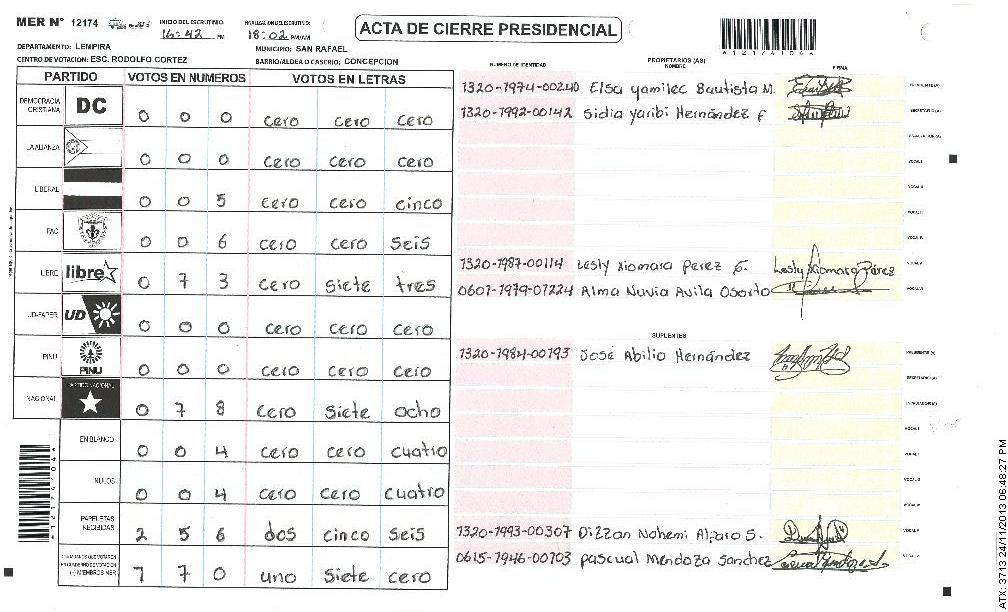 MER N° 12174
INICIO DEL ESCRUTINIO
16:42 PM
FINALIZACION ESCRUTINIO:
18:02 PM/AM
ACTA DE CIERRE PRESIDENCIAL
DEPARTAMENTO: LEMPIRA
MUNICIPIO: SAN RAFAEL
CENTRO DE VOTACION: ESC. RODOLFO CORTEZ
BARRIO/ALDEA O CASERIO: CONCEPCION
PARTIDO VOTOS EN NUMEROS VOTOS EN LETRAS
DEMOCRACIA CRISTIANA DC 0 0 0 cero cero cero
LA ALIANZA 0 0 0 cero cero cero
LIBERAL 0 0 5 cero cero cinco
PAC 0 0 6 cero cero seis
LIBRE libre 0 7 3 cero siete tres
UD-FAPER UD 0 0 0 cero cero cero
PINU PINU 0 0 0 cero cero cero
NACIONAL PARTIDO NACIONAL 0 7 8 cero siete ocho
EN BLANCO 0 0 4 cero cero cuatro
NULOS 0 0 4 cero cero cuatro
PAPELETAS RECIBIDAS 2 5 6 dos cinco seis
CIUDADANOS QUE VOTARON EN CUADERNO DE VOTACION (+) MIEMBROS MER 1 7 0 uno siete cero
NUMERO DE IDENTIDAD
PROPIETARIOS (AS)
NOMBRE
FIRMA
1320-1974-00240 Elsa Yamilec Bautista M. PRESIDENTE (A)
1320-1992-00142 Sidia Yaribi Hernández F SECRETARIO (A)
ESCRUTADOR (A)
VOCAL I
VOCAL II
VOCAL III
VOCAL IV
1320-1987-00114 Lesly Xiomara Perez G. Lesly Xiomara Pérez VOCAL V
0601-1979-01224 Alma Nuvia Avila Osorto VOCAL VI
SUPLENTES
1320-1984-00193 José Abilio Hernández PRESIDENTE (A)
SECRETARIO (A)
ESCRUTADOR (A)
VOCAL I
VOCAL II
VOCAL III
VOCAL IV
1320-1993-00307 Dilzzan Nohemi Alfaro S. VOCAL V
0615-1946-00103 Pascual Mendoza Sanchez VOCAL VI
ATX: 3713 24/11/2013 06:48:27 PM